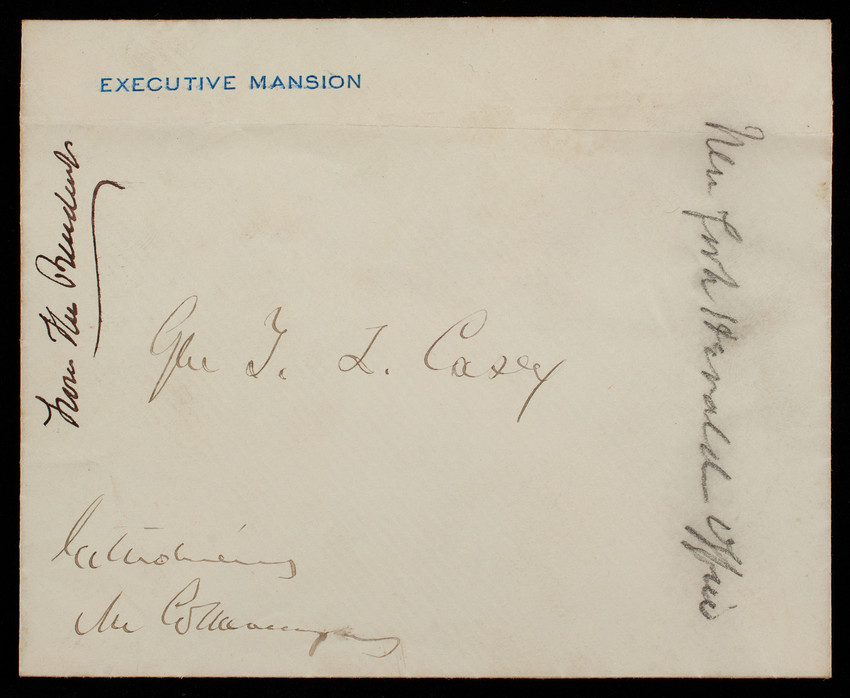 EXECUTIVE MANSION
From the President
Gen T. L. Casey
Introducing
Mr
New York Herald Office